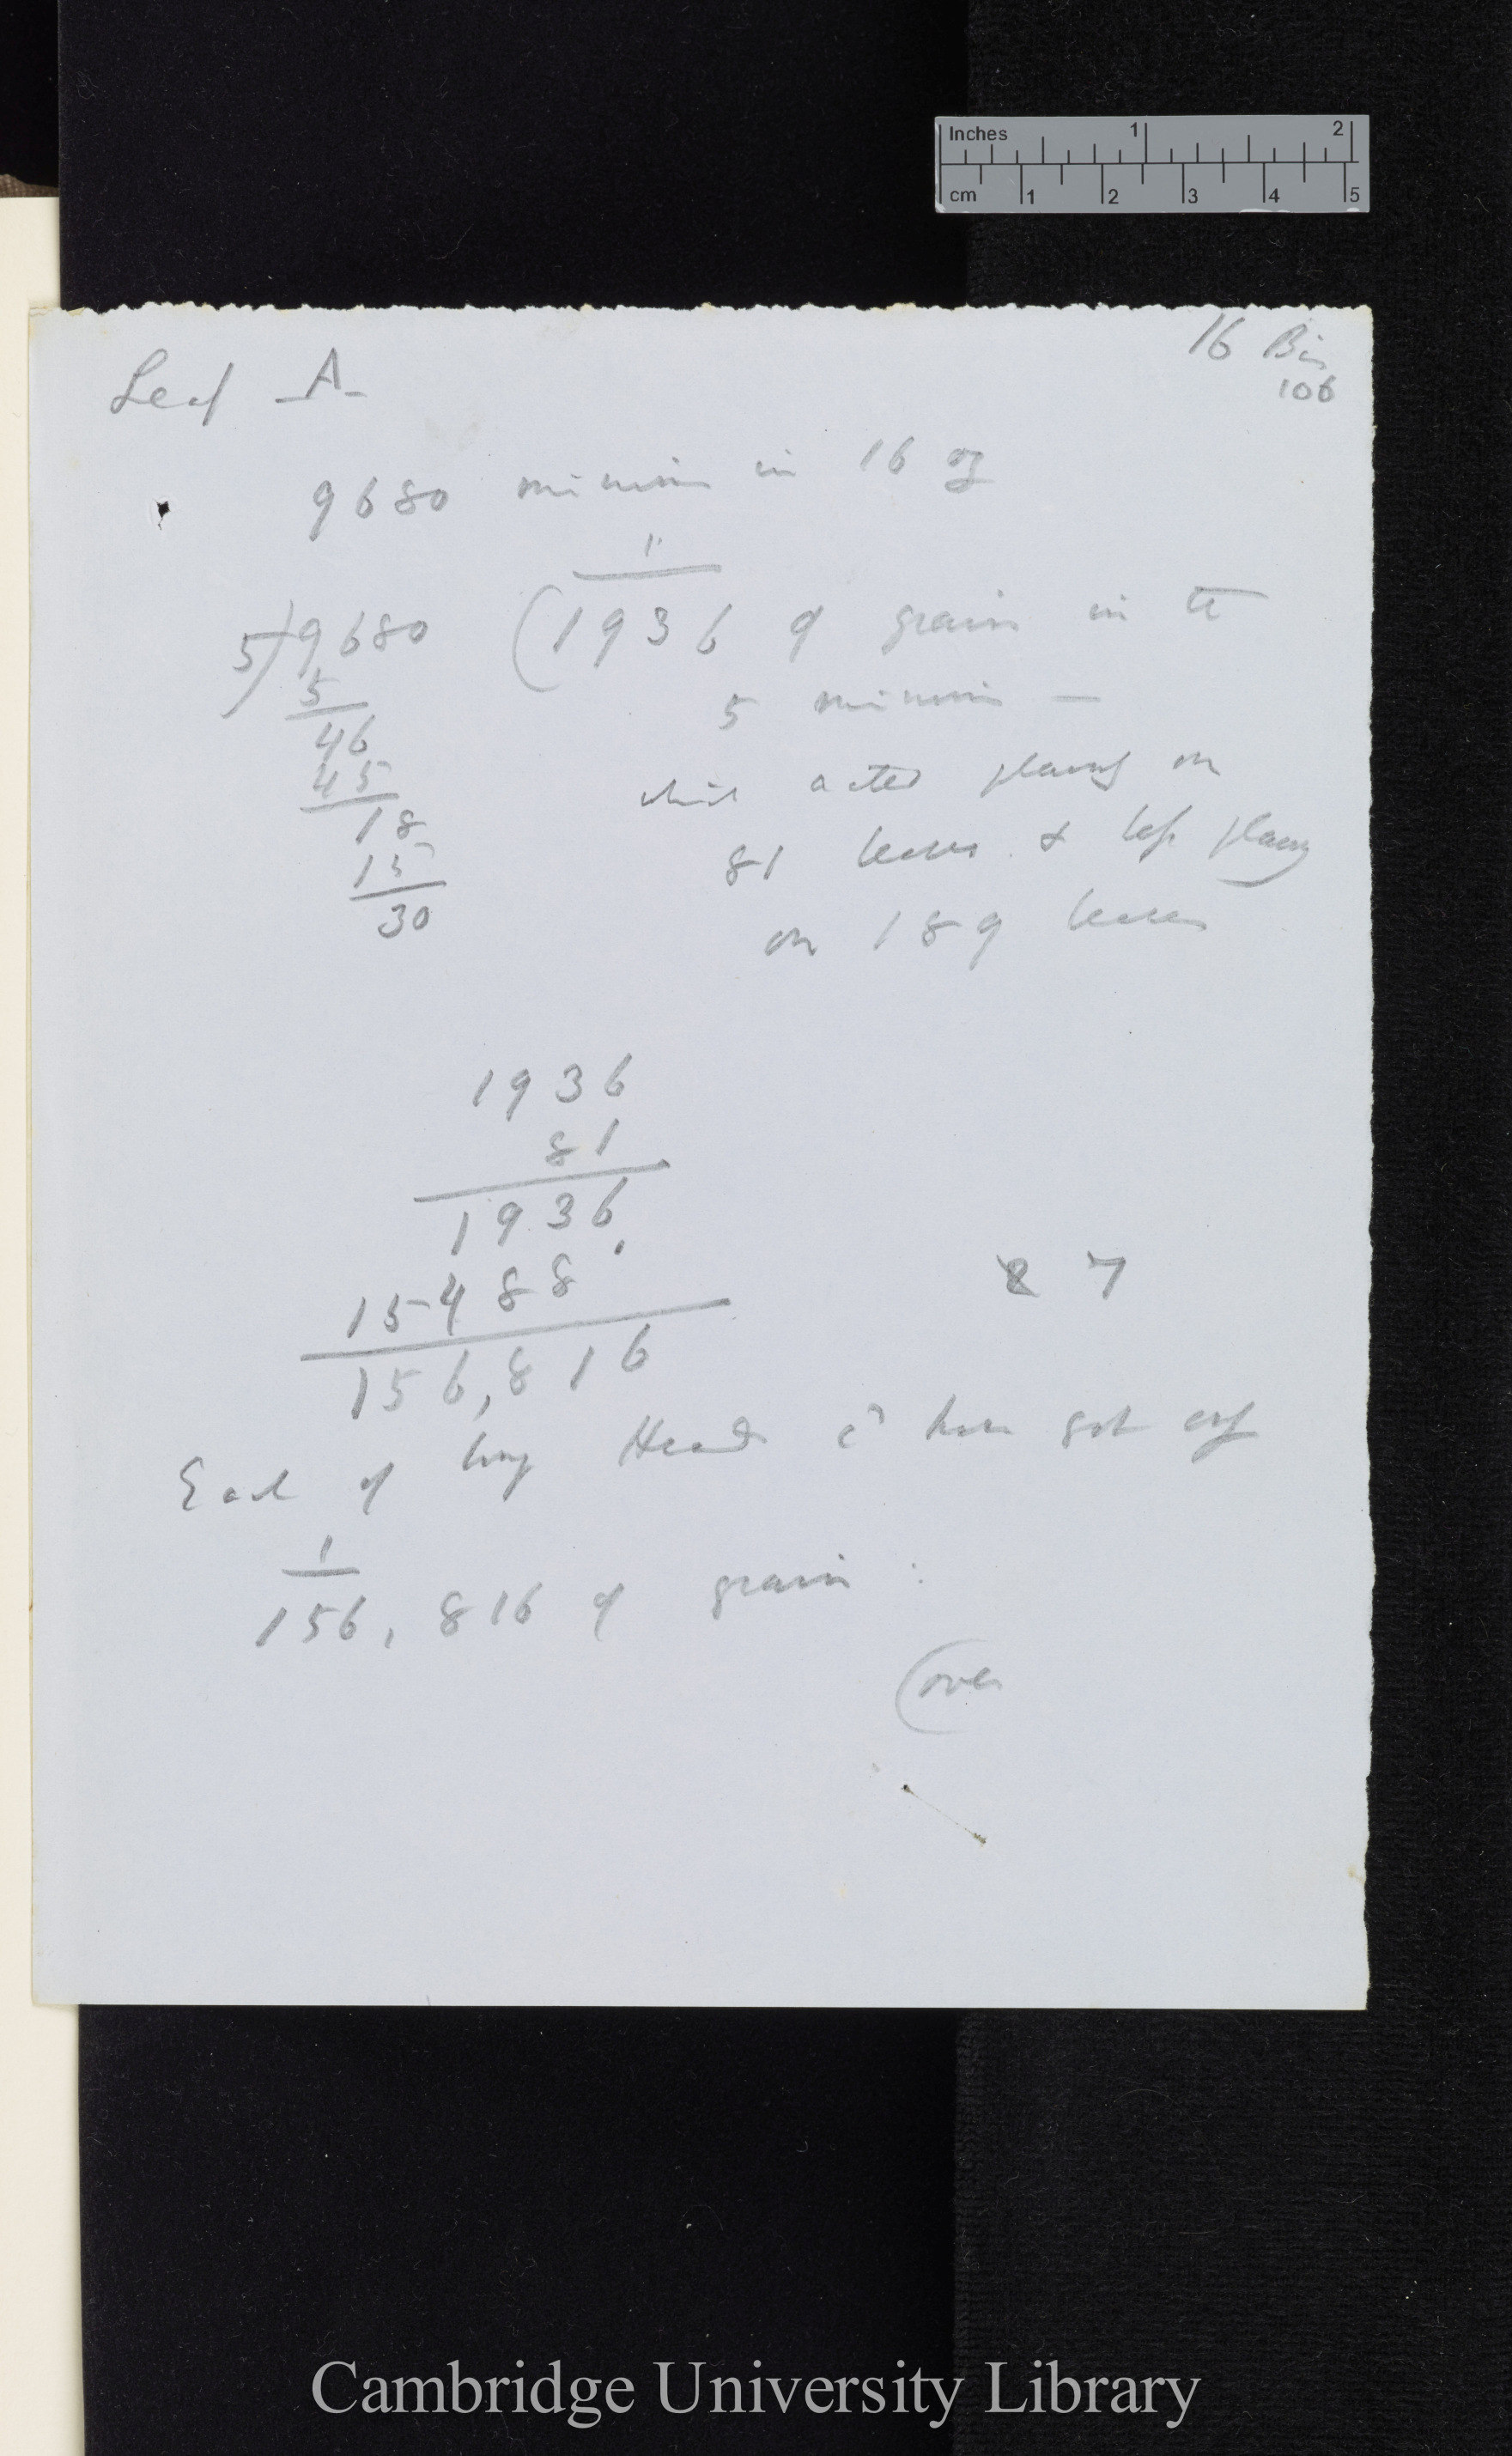 Inches 1 2
cm 1 2 3 4 5
16 Bis
106
Leaf A
9680 minims in 16 oz
1
5)9680 (1936 of grain in the
5
5 minims —
46
45
which acted plainly on
18
81 leaves & less plainly
15
30
on 189 leaves
1936
81
1936
15488
7
156,816
Each of long Heads cd have got only
1
156,816 of grain :
(over
Cambridge University Library